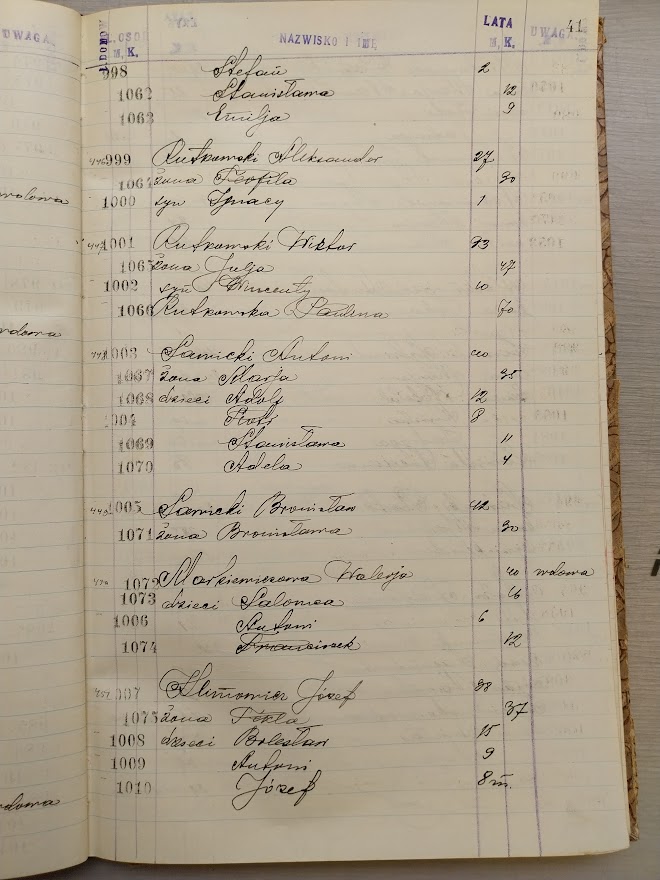 UWAGA. L.DOMOW L. OSÓB NAZWISKO I IMIĘ LATA UWAGA 41
M. K. M. K.
998 Stefan 2
1062 Stanisława 12
1063 Emilja 9
446 999 Rutkowski Aleksander 27
1064 żona Teofila 30
1000 syn Ignacy 1
447 1001 Rutkowski Wiktor
1065 żona Julja 47
1002 syn Wincenty 10
1066 Rutkowska Paulina 70
448 1003 Sawicki Antoni 40
1067 żona Marja 35
1068 dzieci Adolf 12
1004 Piotr 8
1069 Stanisława 11
1070 Adela 4
449 1005 Sawicki Bronisław 42
1071 żona Bronisława 30
450 1072 Markiewiczowa Walerja 40 wdowa
1073 dzieci Salomea 16
1006 Antoni 6
1074 Franciszek 12
451 1007 Klimowicz Józef 38
1075 żona Tekla 37
1008 dzieci Bolesław 15
1009 Antoni 9
1010 Józef 8 m.
wdowa
wdowa